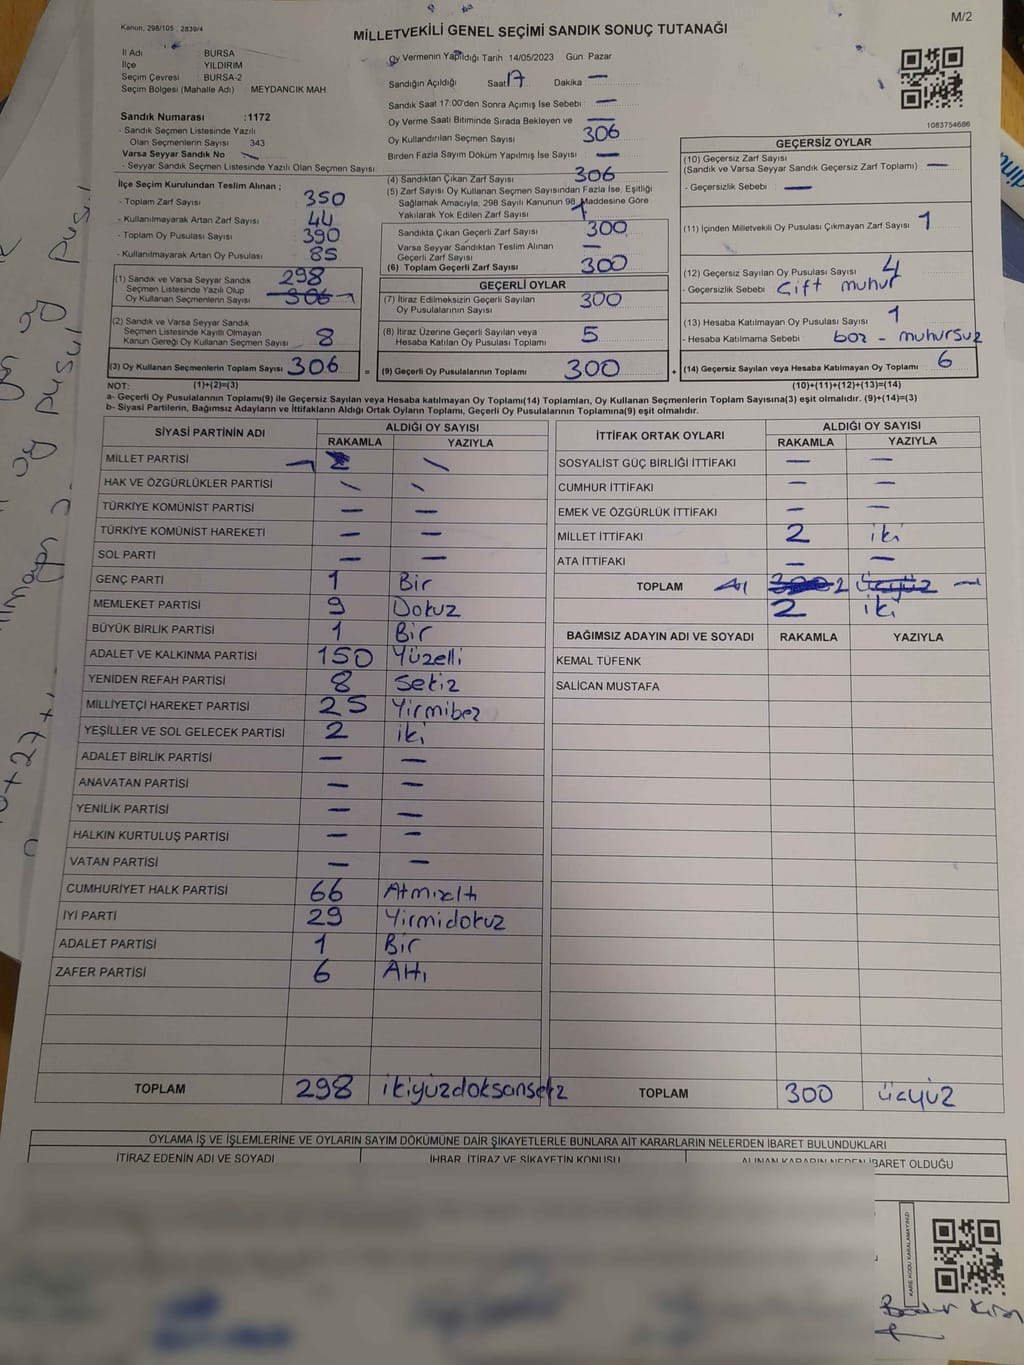 Kanun, 298/105 2839/4
M/2
MİLLETVEKİLİ GENEL SEÇİMİ SANDIK SONUÇ TUTANAĞI
İl Adı BURSA
İlçe YILDIRIM
Seçim Çevresi BURSA-2
Seçim Bölgesi (Mahalle Adı) MEYDANCIK MAH
Sandık Numarası :1172
- Sandık Seçmen Listesinde Yazılı
Olan Seçmenlerin Sayısı 343
Varsa Seyyar Sandık No
- Seyyar Sandık Seçmen Listesinde Yazılı Olan Seçmen Sayısı
İlçe Seçim Kurulundan Teslim Alınan ;
- Toplam Zarf Sayısı 350
- Kullanılmayarak Artan Zarf Sayısı 44
- Toplam Oy Pusulası Sayısı 390
- Kullanılmayarak Artan Oy Pusulası 85
(1) Sandık ve Varsa Seyyar Sandık
Seçmen Listesinde Yazılı Olup
Oy Kullanan Seçmenlerin Sayısı 298 306
(2) Sandık ve Varsa Seyyar Sandık
Seçmen Listesinde Kayıtlı Olmayan
Kanun Gereği Oy Kullanan Seçmen Sayısı 8
(3) Oy Kullanan Seçmenlerin Toplam Sayısı 306 =
Oy Vermenin Yapıldığı Tarih 14/05/2023 Gün: Pazar
Sandığın Açıldığı Saat 17 Dakika —
Sandık Saat 17:00'den Sonra Açımış İse Sebebi —
Oy Verme Saati Bitiminde Sırada Bekleyen ve —
Oy Kullandırılan Seçmen Sayısı 306
Birden Fazla Sayım Döküm Yapılmış İse Sayısı —
(4) Sandıktan Çıkan Zarf Sayısı 306
(5) Zarf Sayısı Oy Kullanan Seçmen Sayısından Fazla İse, Eşitliği
Sağlamak Amacıyla, 298 Sayılı Kanunun 98. Maddesine Göre
Yakılarak Yok Edilen Zarf Sayısı 1
Sandıkta Çıkan Geçerli Zarf Sayısı 300
Varsa Seyyar Sandıktan Teslim Alınan
Geçerli Zarf Sayısı —
(6) Toplam Geçerli Zarf Sayısı 300
GEÇERLİ OYLAR
(7) İtiraz Edilmeksizin Geçerli Sayılan
Oy Pusulalarının Sayısı 300
(8) İtiraz Üzerine Geçerli Sayılan veya
Hesaba Katılan Oy Pusulası Toplamı 5
(9) Geçerli Oy Pusulalarının Toplamı 300 +
1083754686
GEÇERSİZ OYLAR
(10) Geçersiz Zarf Sayısı
(Sandık ve Varsa Seyyar Sandık Geçersiz Zarf Toplamı) —
- Geçersizlik Sebebi —
(11) İçinden Milletvekili Oy Pusulası Çıkmayan Zarf Sayısı 1
(12) Geçersiz Sayılan Oy Pusulası Sayısı 4
- Geçersizlik Sebebi Çift muhur
(13) Hesaba Katılmayan Oy Pusulası Sayısı 1
- Hesaba Katılmama Sebebi boz - muhursuz
(14) Geçersiz Sayılan veya Hesaba Katılmayan Oy Toplamı 6
NOT: (1)+(2)=(3) (10)+(11)+(12)+(13)=(14)
a- Geçerli Oy Pusulalarının Toplamı(9) ile Geçersiz Sayılan veya Hesaba katılmayan Oy Toplamı(14) Toplamları, Oy Kullanan Seçmenlerin Toplam Sayısına(3) eşit olmalıdır. (9)+(14)=(3)
b- Siyasi Partilerin, Bağımsız Adayların ve İttifakların Aldığı Ortak Oyların Toplamı, Geçerli Oy Pusulalarının Toplamına(9) eşit olmalıdır.
SİYASİ PARTİNİN ADI ALDIĞI OY SAYISI
RAKAMLA YAZIYLA
MİLLET PARTİSİ
HAK VE ÖZGÜRLÜKLER PARTİSİ
TÜRKİYE KOMÜNİST PARTİSİ — —
TÜRKİYE KOMÜNİST HAREKETİ — —
SOL PARTİ — —
GENÇ PARTİ 1 Bir
MEMLEKET PARTİSİ 9 Dokuz
BÜYÜK BİRLİK PARTİSİ 1 Bir
ADALET VE KALKINMA PARTİSİ 150 Yüzelli
YENİDEN REFAH PARTİSİ 8 Sekiz
MİLLİYETÇİ HAREKET PARTİSİ 25 Yirmibez
YEŞİLLER VE SOL GELECEK PARTİSİ 2 iki
ADALET BİRLİK PARTİSİ — —
ANAVATAN PARTİSİ — —
YENİLİK PARTİSİ — —
HALKIN KURTULUŞ PARTİSİ — —
VATAN PARTİSİ — —
CUMHURİYET HALK PARTİSİ 66 Atmızaltı
İYİ PARTİ 29 Yirmidokuz
ADALET PARTİSİ 1 Bir
ZAFER PARTİSİ 6 Altı
TOPLAM 298 ikiyüzdoksansekiz
İTTİFAK ORTAK OYLARI ALDIĞI OY SAYISI
RAKAMLA YAZIYLA
SOSYALİST GÜÇ BİRLİĞİ İTTİFAKI — —
CUMHUR İTTİFAKI — —
EMEK VE ÖZGÜRLÜK İTTİFAKI — —
MİLLET İTTİFAKI 2 iki
ATA İTTİFAKI — —
TOPLAM 300 2 üçyüz
2 iki
BAĞIMSIZ ADAYIN ADI VE SOYADI RAKAMLA YAZIYLA
KEMAL TÜFENK
SALİCAN MUSTAFA
TOPLAM 300 üçyüz
OYLAMA İŞ VE İŞLEMLERİNE VE OYLARIN SAYIM DÖKÜMÜNE DAİR ŞİKAYETLERLE BUNLARA AİT KARARLARIN NELERDEN İBARET BULUNDUKLARI
İTİRAZ EDENİN ADI VE SOYADI İHBAR, İTİRAZ VE ŞİKAYETİN KONUSU ALINAN KARARIN NEDEN İBARET OLDUĞU
KARE KODU KARALAMAYINIZ!